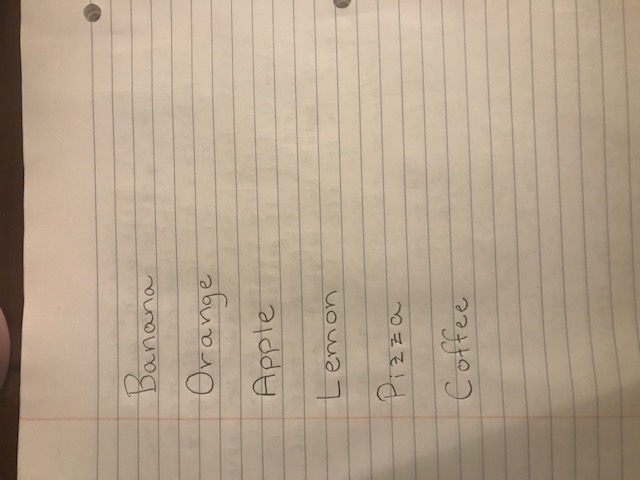 Banana
Orange
Apple
Lemon
Pizza
Coffee